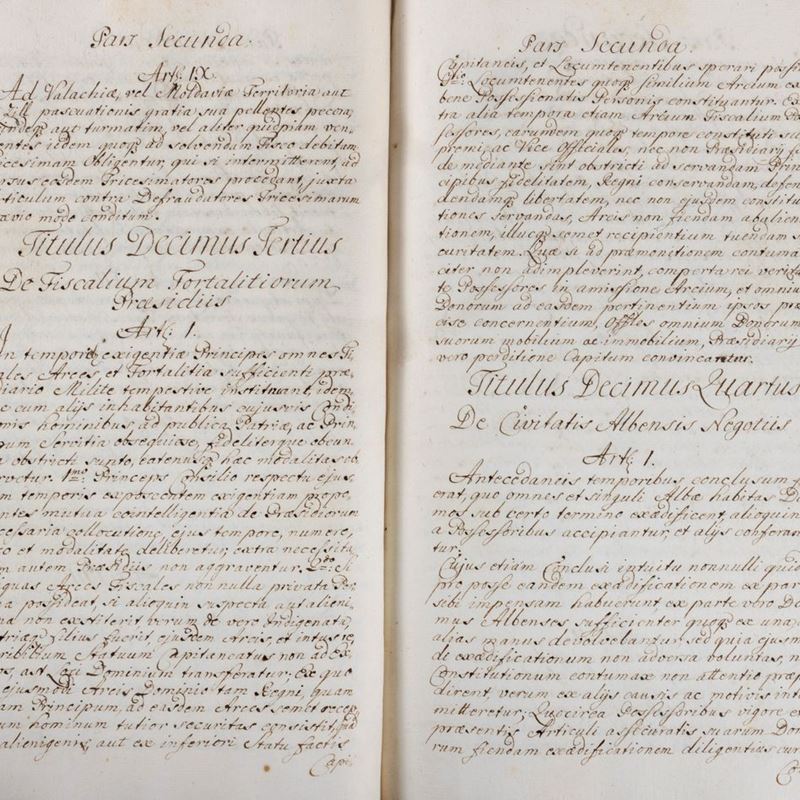 Pars Secunda.
Art: IX.
Ad Valachiæ, vel Moldaviæ Territoria aut
pascuationis gratia sua pellentes pecora,
aut turmatim, vel aliter quidpiam ven-
entes iidem quoq ad solvendum Fisco debitam
ricesimam Aligentur, qui si intermitterent, ad
ersus eosdem Tricesimatores procedant, juxta
rticulum contra Defraudatores Tricesimarum
ævio mode conditum.
Titulus Decimus Tertius
De Fiscalium Fortalitiorum
Præsidiis
Art: 1.
In temporis exigentia Principes omnes Fi,
ales Arces, et Fortalitia sufficienti præ,
diario Milite tempestive instituant, idem,
e cum alijs inhabitantibus cujusvis Condi,
onis hominibus, ad publica Patriæ, ac Prin,
um Servitia obsequiæse, fideliterque obeun
a obstricti sunto, eatenusq hæc modalitas ob,
rvetur. 1mo Princeps Consilio respectu ejus,
m temporis exposcentem exigentiam prope,
ntes mutua cointelligentia de Præsidiorum
cessaria collocutione, ejus tempore, numero,
o et modalitate deliberetur, extra necessita,
m autem Præsidiis non aggraventur. 2do Si
quas Arces Fiscales nonnulla privata Per,
a possideat, si alioquin suspecta aut alieni,
na non exstiterit verum de vere Indigenatæ
triæq filius fuerit, ejusdem Arcis, et intus re,
ribilium Statuum Capitaneatus non ad ex,
os, ast Loci Dominium transferatur; Ex quo
ejusmodi Arcis Dominio tam Regni, quam
am Principum, ad easdem Arces semet recep,
um hominum tutior securitas consistit, qua
alienigenis, aut ex inferiori Statu factis
Capi
Pars Secunda.
Capitaneis, et Locumtenentibus sperari possit
Locumtenentes quoq similium Arcium ex
bene Possessionatis Personis constituantur. Ex
tra alia tempora etiam Arcium Fiscalium Pos
sessores, earundem quoq tempore constituti Su
premi, ac Vice Officiales, nec non Præsidiarij fi
de mediante sint obstricti ad servandam Prin
cipibus fidelitatem, Regni conservandam, defen
dendamq libertatem, nec non ejusdem constitu
tiones servandas, Arcis non fiendam abaliena
tionem, illucq semet recipientium tuendam se
curitatem. Quæ si ad præmonitionem contuma
citer non adimpleverint, comperta rei verita
te Possessores in amissione Arcium, et omnium
Bonorum ad easdem pertinentium ipsos præ
cise concernentium, Offles omnium Bonorum
suorum mobilium ac immobilium, Præsidiarij
vero perditione Capitum convincantur.
Titulus Decimus Quartus
De Civitatis Albensis Negotiis
Art: 1.
Antecedaneis temporibus conclusum f
erat, quo omnes et singuli Albæ habitas Do
mos sub certo termino exædificent, alioquin
a Possessoribus accipiantur, et alijs conferan
tur;
Cujus etiam Conclusi intuitu nonnulli quid
pro posse eandem exædificationem ex par
sibi impensam habuerunt, ex parte vero Do
mus Albenses sufficienter quoq ex una
alias manus devolvelantur, sed quia ejusmo
di exædificationum non adversa voluntas, n
Constitutionum contumax non attentio præp
dirent, verum ex alijs causis ac motivis inter
mitteretur; Quocirca Possessoribus vigore e
præsentis Articuli assecuratis suarum Domo
rum fiendam exædificationem diligentius cur